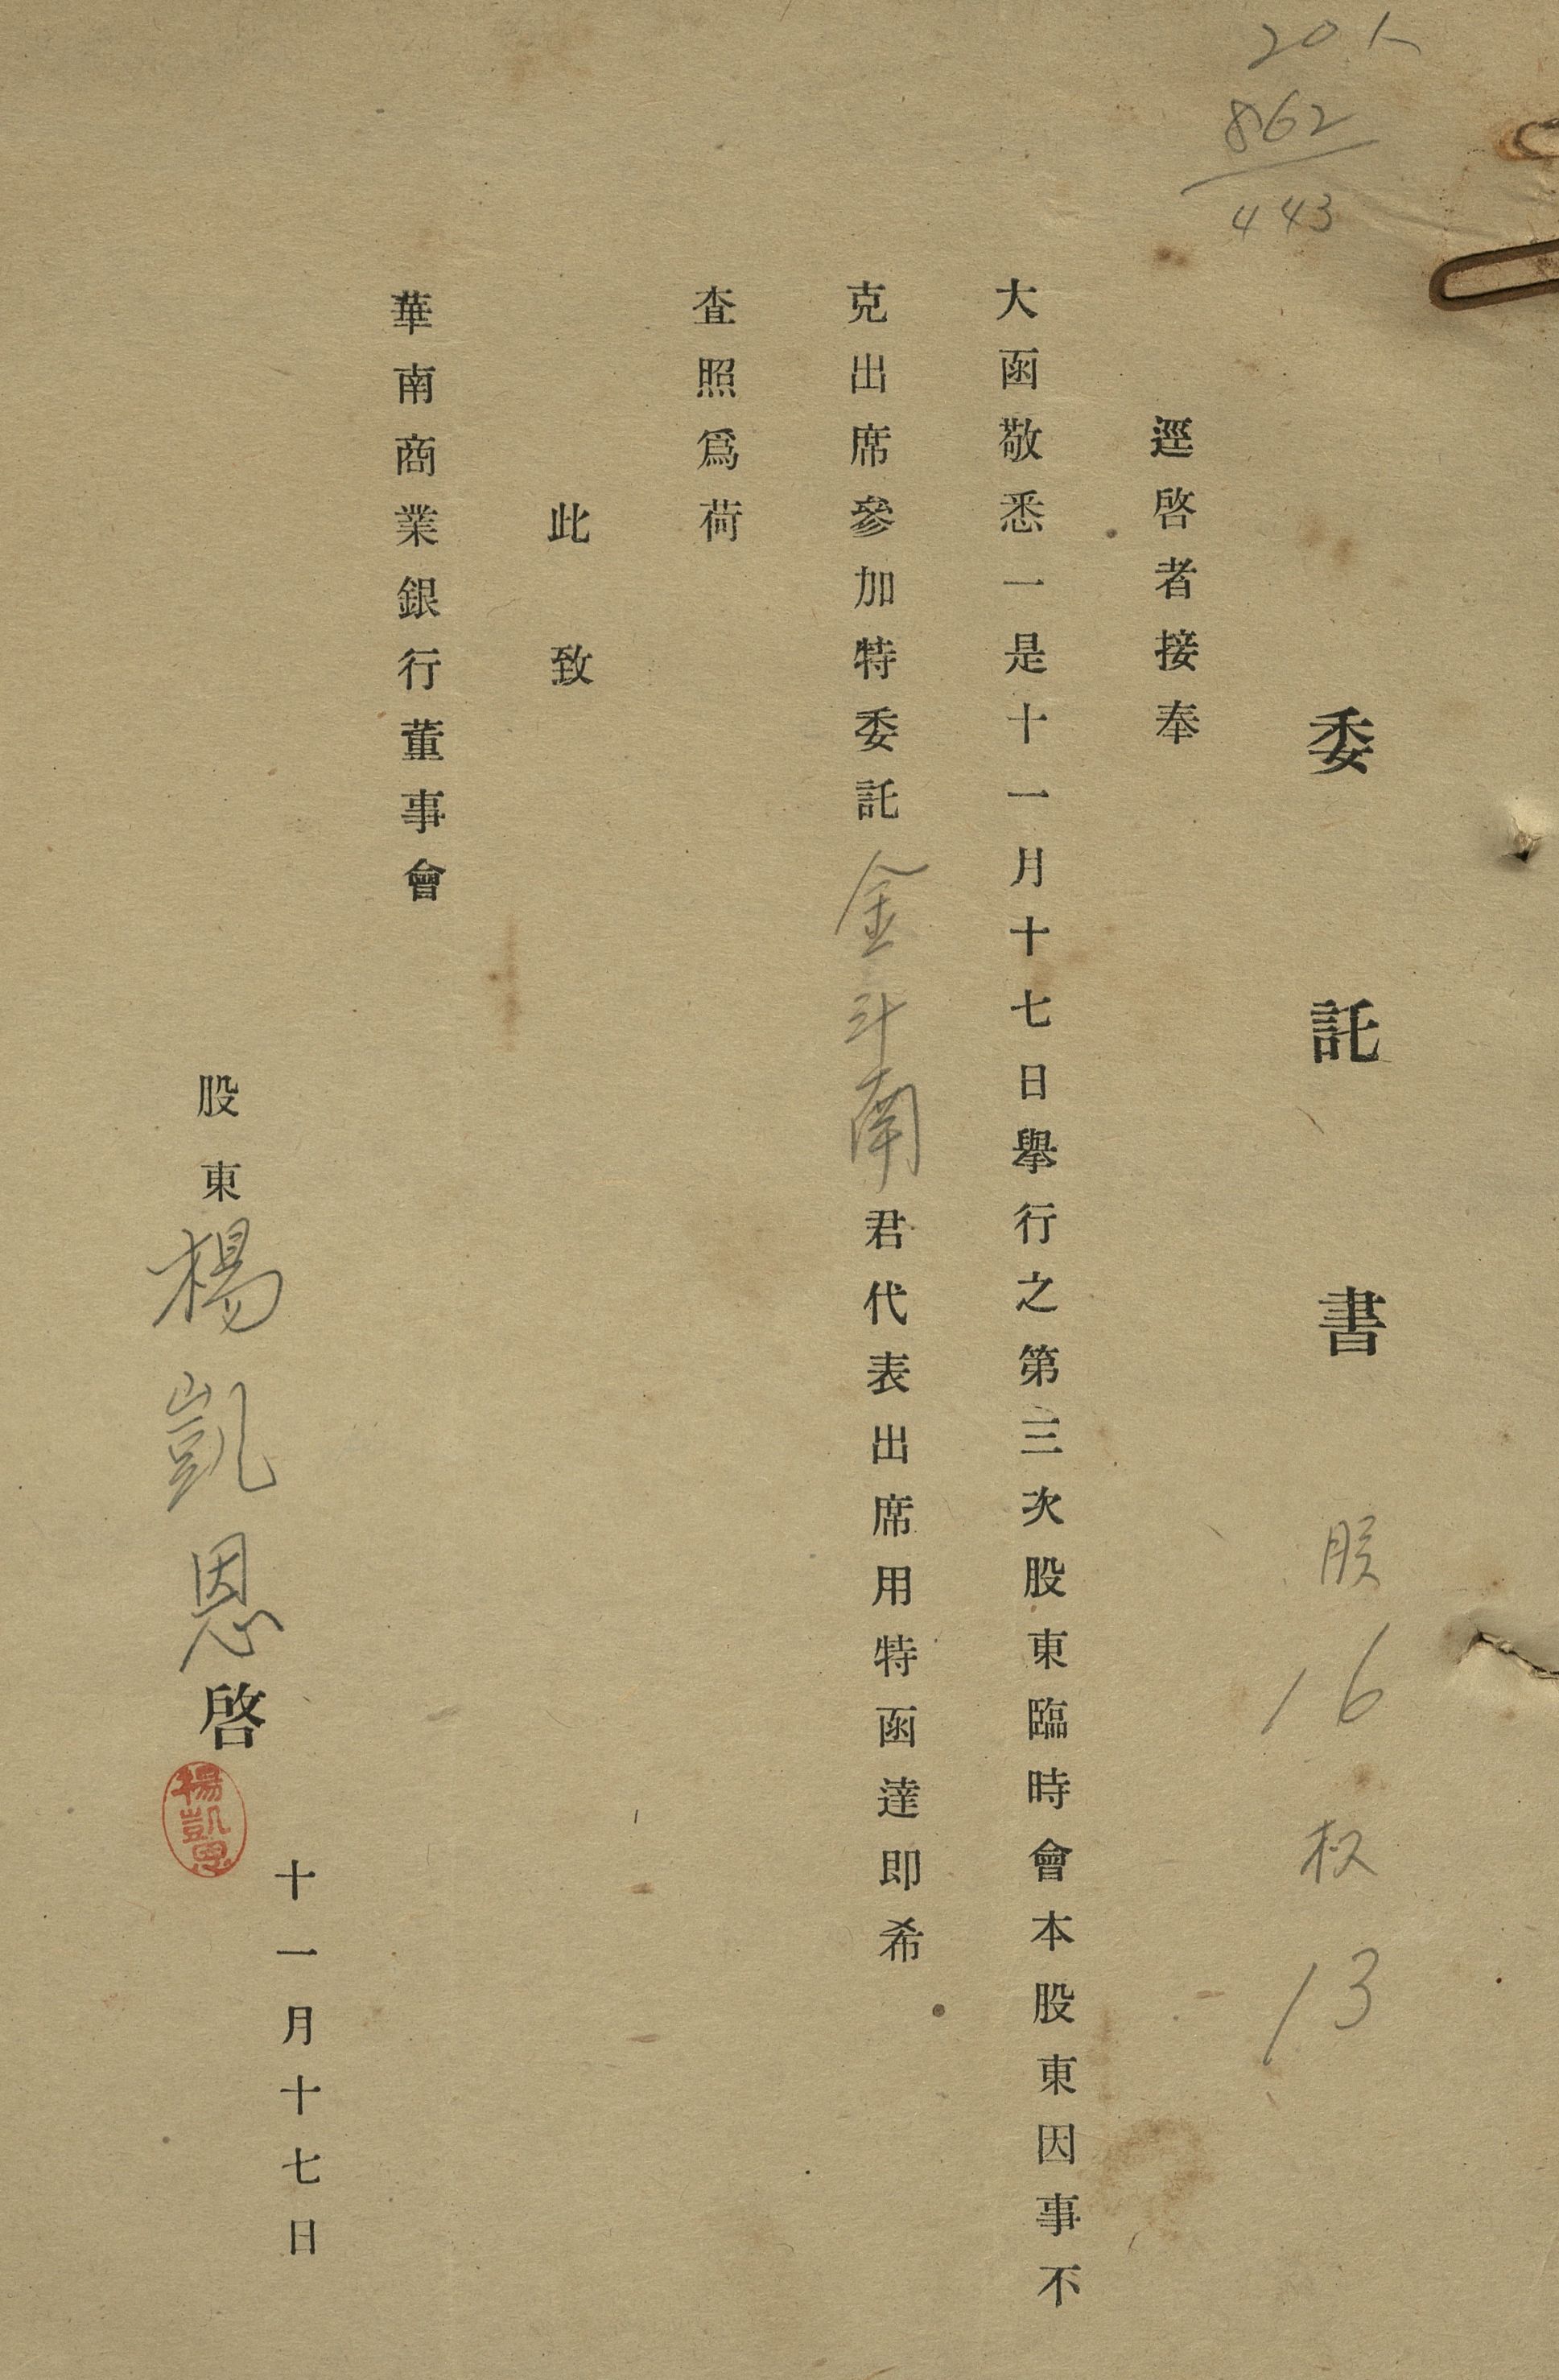 20人
862
443
委託書 股16 权13
逕啓者接奉
大函敬悉一是十一月十七日舉行之第三次股東臨時會本股東因事不
克出席參加特委託金斗南君代表出席用特函達即希
查照爲荷
此致
華南商業銀行董事會
十一月十七日
股東楊凱恩啓
楊凱恩